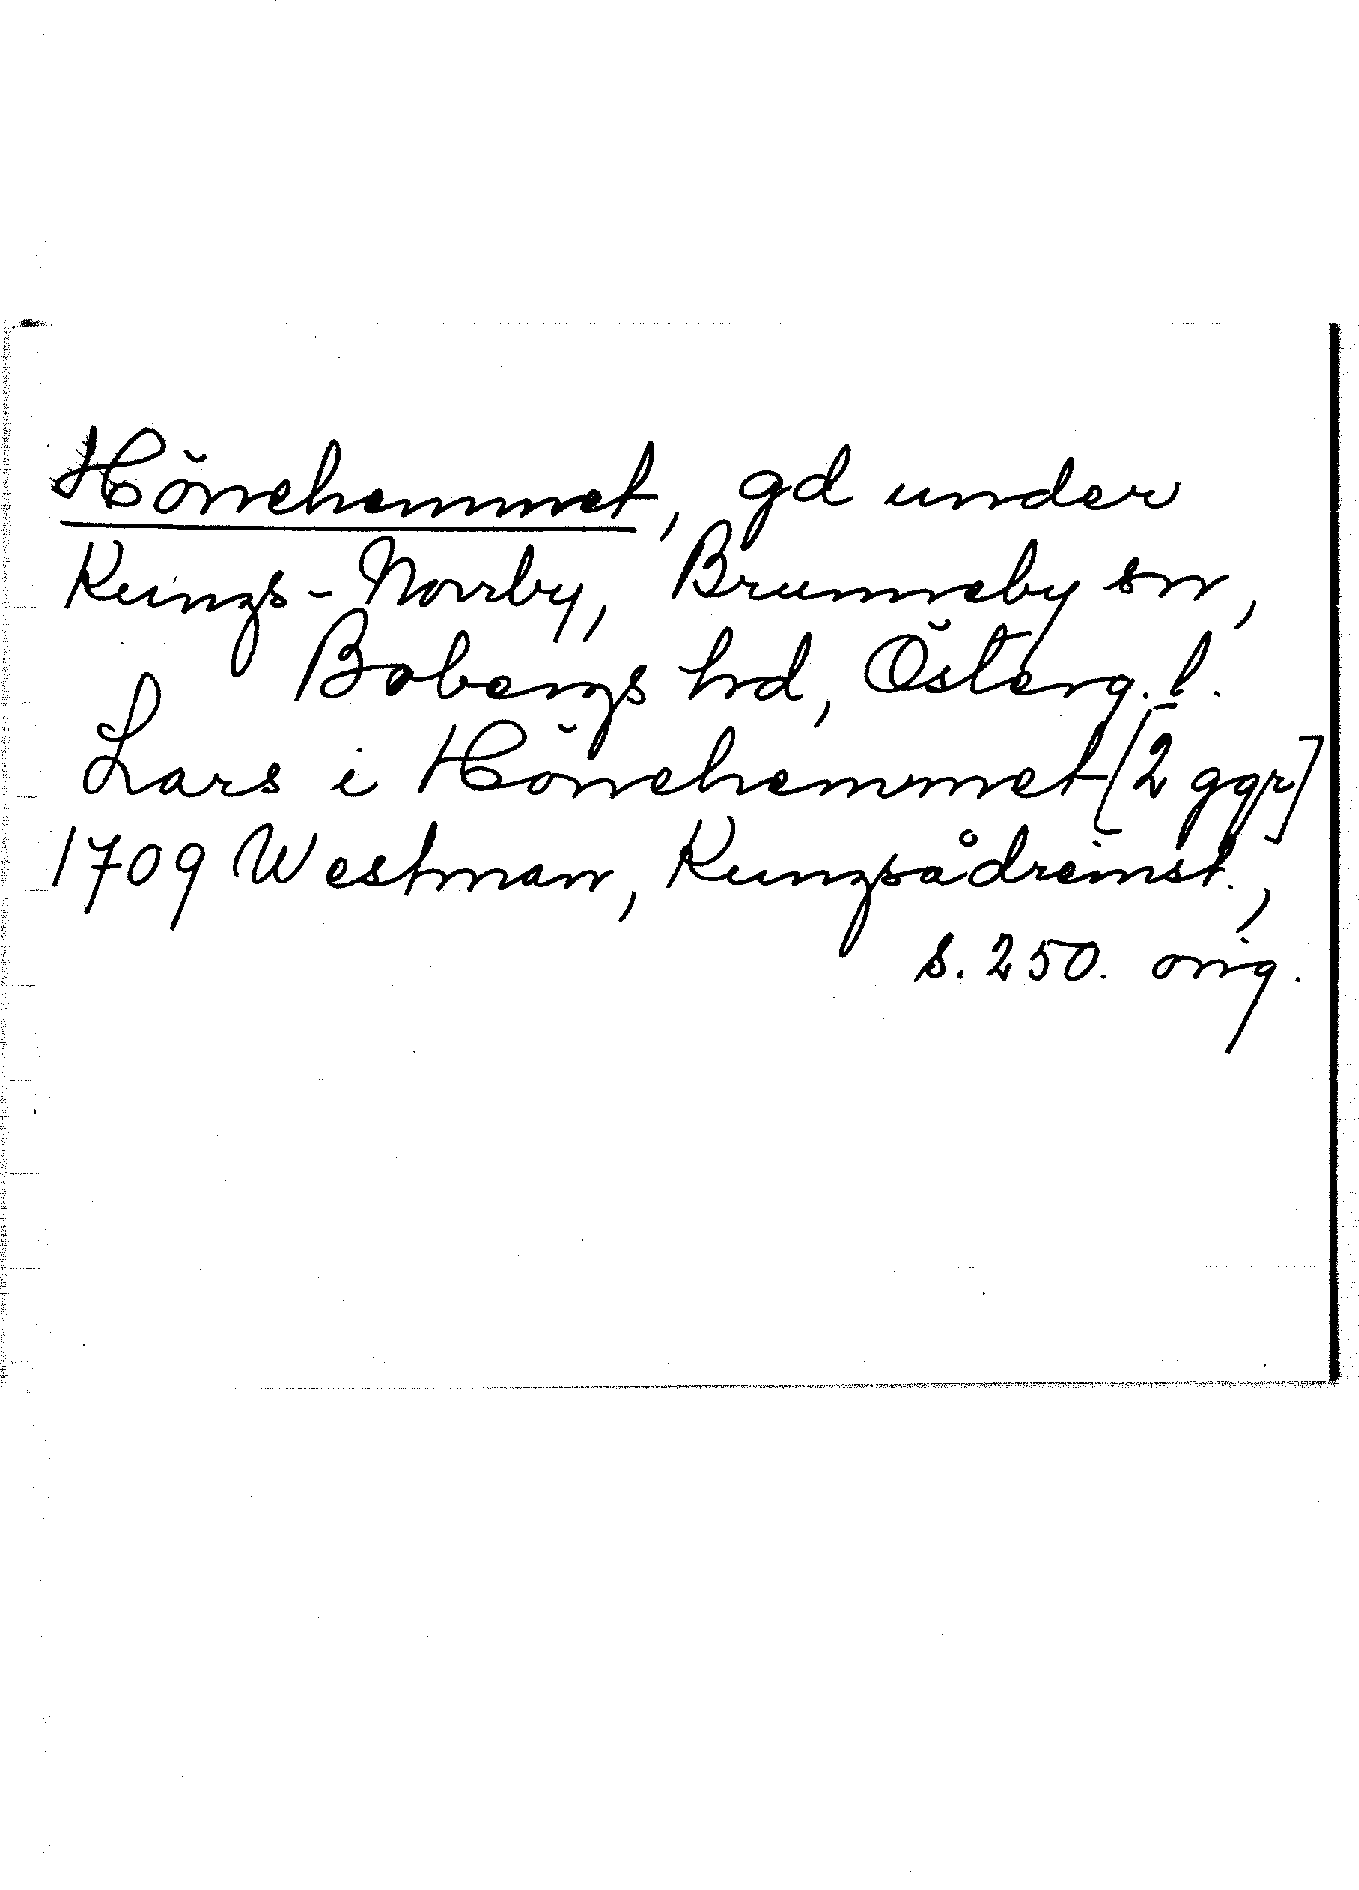 Hönehemmet, gd under
Kungs-Norrby, Brunneby sn,
Bobergs hd, Österg. l.
Lars i Hönehemmet [2 ggr]
1709 Westman, Kungsådreinst.,
s. 250. orig.